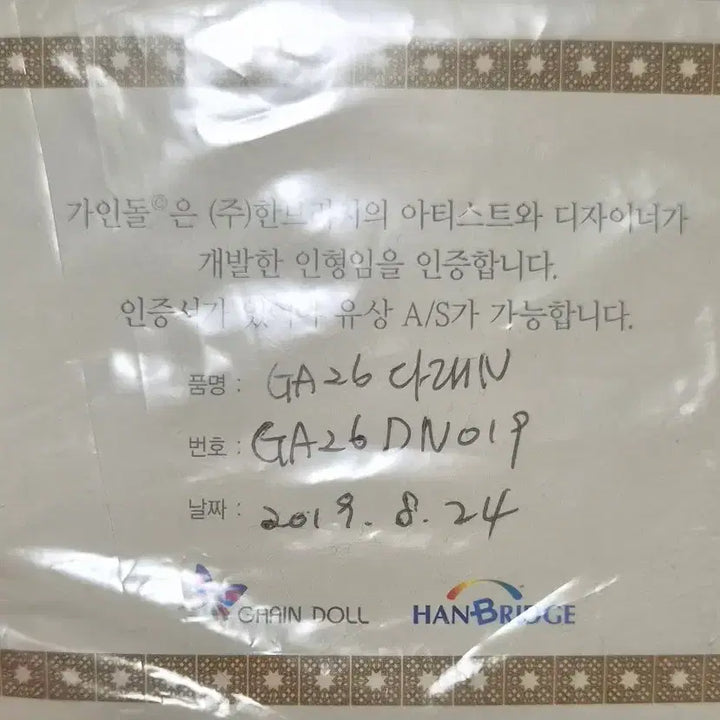 가인돌©은 (주)한브리지의 아티스트와 디자이너가
개발한 인형임을 인증합니다.
인증서가 있어야 유상 A/S가 가능합니다.
품명 : GA26 다래N
번호 : GA26DN019
날짜 : 2019. 8. 24
GHAIN DOLL HANBRIDGE